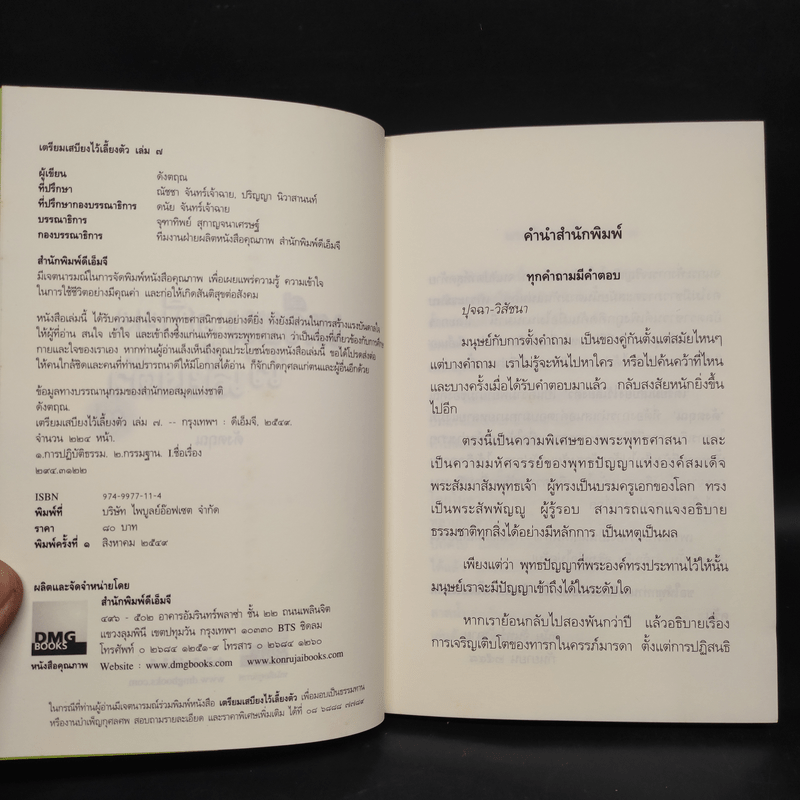 เตรียมเสบียงไว้เลี้ยงตัว เล่ม ๗
ผู้เขียน ดังตฤณ
ที่ปรึกษา ณัชชา จันทร์เจ้าฉาย, ปริญญา นิวาสานนท์
ที่ปรึกษากองบรรณาธิการ ดนัย จันทร์เจ้าฉาย
บรรณาธิการ จุฑาทิพย์ สุกาญจนาเศรษฐ์
กองบรรณาธิการ ทีมงานฝ่ายผลิตหนังสือคุณภาพ สำนักพิมพ์ดีเอ็มจี
สำนักพิมพ์ดีเอ็มจี
มีเจตนารมณ์ในการจัดพิมพ์หนังสือคุณภาพ เพื่อเผยแพร่ความรู้ ความเข้าใจ
ในการใช้ชีวิตอย่างมีคุณค่า และก่อให้เกิดสันติสุขต่อสังคม
หนังสือเล่มนี้ ได้รับความสนใจจากพุทธศาสนิกชนอย่างดียิ่ง ทั้งยังมีส่วนในการสร้างแรงบันดาลใจ
ให้ผู้อ่าน สนใจ เข้าใจ และเข้าถึงซึ่งแก่นแท้ของพระพุทธศาสนา ว่าเป็นเรื่องที่เกี่ยวข้องกับการศึกษา
กายและใจของเราเอง หากท่านผู้อ่านเล็งเห็นถึงคุณประโยชน์ของหนังสือเล่มนี้ ขอได้โปรดส่งต่อ
ให้คนใกล้ชิดและคนที่ท่านปรารถนาดีให้มีโอกาสได้อ่าน ก็จักเกิดกุศลแก่ตนและผู้อื่นอีกด้วย
ข้อมูลทางบรรณานุกรมของสำนักหอสมุดแห่งชาติ
ดังตฤณ.
เตรียมเสบียงไว้เลี้ยงตัว เล่ม ๗. -- กรุงเทพฯ : ดีเอ็มจี, ๒๕๔๙.
จำนวน ๒๒๔ หน้า.
๑.การปฏิบัติธรรม. ๒.กรรมฐาน. I.ชื่อเรื่อง
๒๙๔.๓๑๒๒
ISBN 974-9977-11-4
พิมพ์ที่ บริษัท ไพบูลย์อ๊อฟเซต จำกัด
ราคา ๘๐ บาท
พิมพ์ครั้งที่ ๑ สิงหาคม ๒๕๔๙
ผลิตและจัดจำหน่ายโดย
สำนักพิมพ์ดีเอ็มจี
๔๙๖ - ๕๐๒ อาคารอัมรินทร์พลาซ่า ชั้น ๒๒ ถนนเพลินจิต
แขวงลุมพินี เขตปทุมวัน กรุงเทพฯ ๑๐๓๓๐ BTS ชิดลม
โทรศัพท์ ๐ ๒๖๘๔ ๑๒๕๑-๙ โทรสาร ๐ ๒๖๘๔ ๑๒๖๐
Website : www.dmgbooks.com , www.konrujaibooks.com
DMG
BOOKS
หนังสือคุณภาพ
ในกรณีที่ท่านผู้อ่านมีเจตนารมณ์ร่วมพิมพ์หนังสือ เตรียมเสบียงไว้เลี้ยงตัว เพื่อมอบเป็นธรรมทาน
หรืองานบำเพ็ญกุศลศพ สอบถามรายละเอียด และราคาพิเศษเพิ่มเติม ได้ที่ ๐๘ ๖๘๘๘ ๗๗๘๙
คำนำสำนักพิมพ์
ทุกคำถามมีคำตอบ
ปุจฉา-วิสัชนา
มนุษย์กับการตั้งคำถาม เป็นของคู่กันตั้งแต่สมัยไหนๆ
แต่บางคำถาม เราไม่รู้จะหันไปหาใคร หรือไปค้นคว้าที่ไหน
และบางครั้งเมื่อได้รับคำตอบมาแล้ว กลับสงสัยหนักยิ่งขึ้น
ไปอีก
ตรงนี้เป็นความพิเศษของพระพุทธศาสนา และ
เป็นความมหัศจรรย์ของพุทธปัญญาแห่งองค์สมเด็จ
พระสัมมาสัมพุทธเจ้า ผู้ทรงเป็นบรมครูเอกของโลก ทรง
เป็นพระสัพพัญญู ผู้รู้รอบ สามารถแจกแจงอธิบาย
ธรรมชาติทุกสิ่งได้อย่างมีหลักการ เป็นเหตุเป็นผล
เพียงแต่ว่า พุทธปัญญาที่พระองค์ทรงประทานไว้ให้นั้น
มนุษย์เราจะมีปัญญาเข้าถึงได้ในระดับใด
หากเราย้อนกลับไปสองพันกว่าปี แล้วอธิบายเรื่อง
การเจริญเติบโตของทารกในครรภ์มารดา ตั้งแต่การปฏิสนธิ